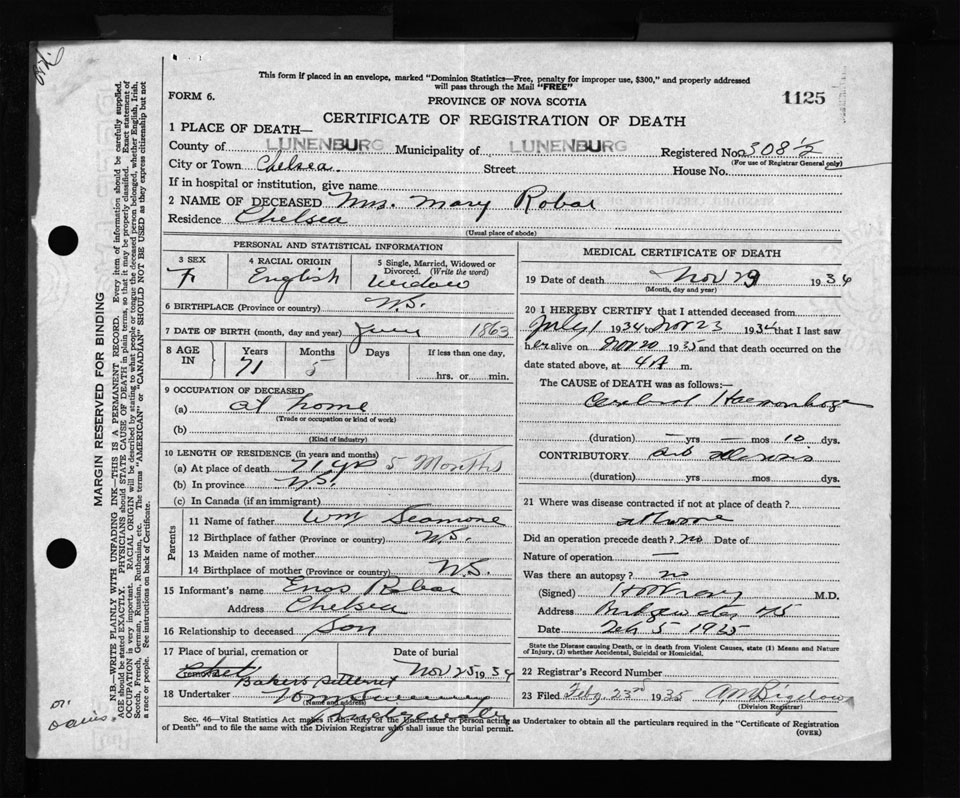 This form if placed in an envelope, marked "Dominion Statistics—Free, penalty for improper use, $300," and properly addressed
will pass through the Mail "FREE"
FORM 6.
PROVINCE OF NOVA SCOTIA
1125
CERTIFICATE OF REGISTRATION OF DEATH
1 PLACE OF DEATH—
County of LUNENBURG Municipality of LUNENBURG Registered No. 308½
(For use of Registrar General only)
City or Town Chelsea. Street House No.
If in hospital or institution, give name
2 NAME OF DECEASED Mrs. Mary Robar
Residence Chelsea
(Usual place of abode)
PERSONAL AND STATISTICAL INFORMATION
3 SEX F
4 RACIAL ORIGIN English
5 Single, Married, Widowed or Divorced. (Write the word) Widow
6 BIRTHPLACE (Province or country) N.S.
7 DATE OF BIRTH (month, day and year) June 1863
8 AGE IN Years 71 Months 5 Days If less than one day. hrs. or min.
9 OCCUPATION OF DECEASED
(a) at home
(Trade or occupation or kind of work)
(b)
(Kind of industry)
10 LENGTH OF RESIDENCE (in years and months)
(a) At place of death 71 yrs 5 Months
(b) In province N.S.
(c) In Canada (if an immigrant)
Parents
11 Name of father Wm Seamone
12 Birthplace of father (Province or country) N.S.
13 Maiden name of mother
14 Birthplace of mother (Province or country) N.S.
15 Informant's name Enos Robar
Address Chelsea
16 Relationship to deceased Son
17 Place of burial, cremation or Date of burial
Bakers Settlemt Nov 25 1934
18 Undertaker
(Name and address)
Bridgewater
MEDICAL CERTIFICATE OF DEATH
19 Date of death Nov 1934
(Month, day and year)
20 I HEREBY CERTIFY that I attended deceased from
July 1 1934 Nov 23 1934 that I last saw
her alive on Nov 20 1935 and that death occurred on the
date stated above, at 4 A m.
The CAUSE of DEATH was as follows:—
Cerebral Haemorrhage
(duration) — yrs — mos 10 dys.
CONTRIBUTORY
(duration) yrs mos dys.
21 Where was disease contracted if not at place of death?
at home
Did an operation precede death? no Date of
Nature of operation —
Was there an autopsy? no
(Signed) M.D.
Address Bridgewater NS
Date Feb 5 1935
State the Disease causing Death, or in death from Violent Causes, state (1) Means and Nature
of Injury, (2) whether Accidental, Suicidal or Homicidal.
22 Registrar's Record Number
23 Filed Feb 23rd 1935 A. M. Bigelow
(Division Registrar)
Sec. 46—Vital Statistics Act makes it the duty of the Undertaker or person acting as Undertaker to obtain all the particulars required in the "Certificate of Registration
of Death" and to file the same with the Division Registrar who shall issue the burial permit. (OVER)
MARGIN RESERVED FOR BINDING
N.B.—WRITE PLAINLY WITH UNFADING INK—THIS IS A PERMANENT RECORD. Every item of information should be carefully supplied.
AGE should be stated EXACTLY. PHYSICIANS should STATE CAUSE OF DEATH in plain terms, so that it may be properly classified. Exact statement of
OCCUPATION is very important. RACIAL ORIGIN will be described by stating to what people or tongue the deceased person belonged, whether English, Irish,
Scotch, French, German, Russian, Ruthenian, etc. The terms "AMERICAN" or "CANADIAN" SHOULD NOT BE USED as they express citizenship but not
a race or people. See instructions on back of Certificate.